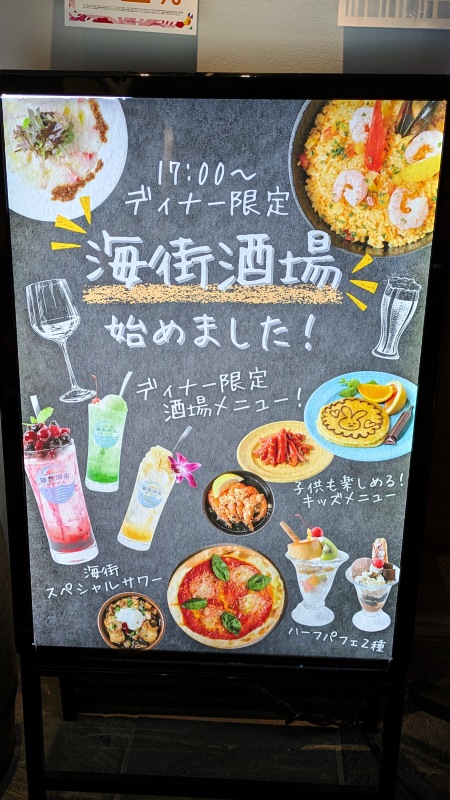 %
17:00～
ディナー限定
海街酒場
始めました！
ディナー限定
酒場メニュー！
子供も楽しめる！
キッズメニュー
海街
スペシャルサワー
ハーフパフェ2種